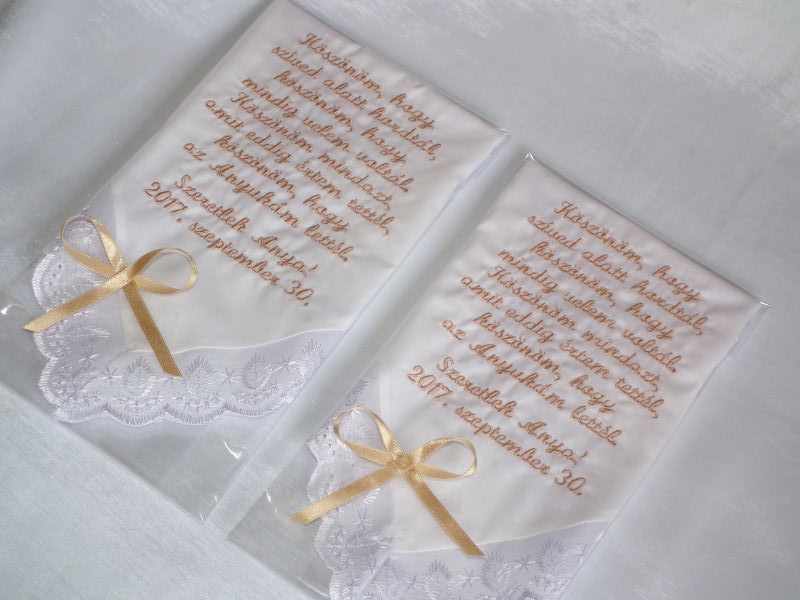 Köszönöm, hogy
szived alatt hordtál,
köszönöm, hogy
mindig velem voltál.
Köszönöm mindazt,
amit eddig értem tettél,
köszönöm, hogy
az Anyukám lettél.
Szeretlek Anya!
2017. szeptember 30.
Köszönöm, hogy
szived alatt hordtál,
köszönöm, hogy
mindig velem voltál.
Köszönöm mindazt,
amit eddig értem tettél,
köszönöm, hogy
az Anyukám lettél.
Szeretlek Anya!
2017. szeptember 30.